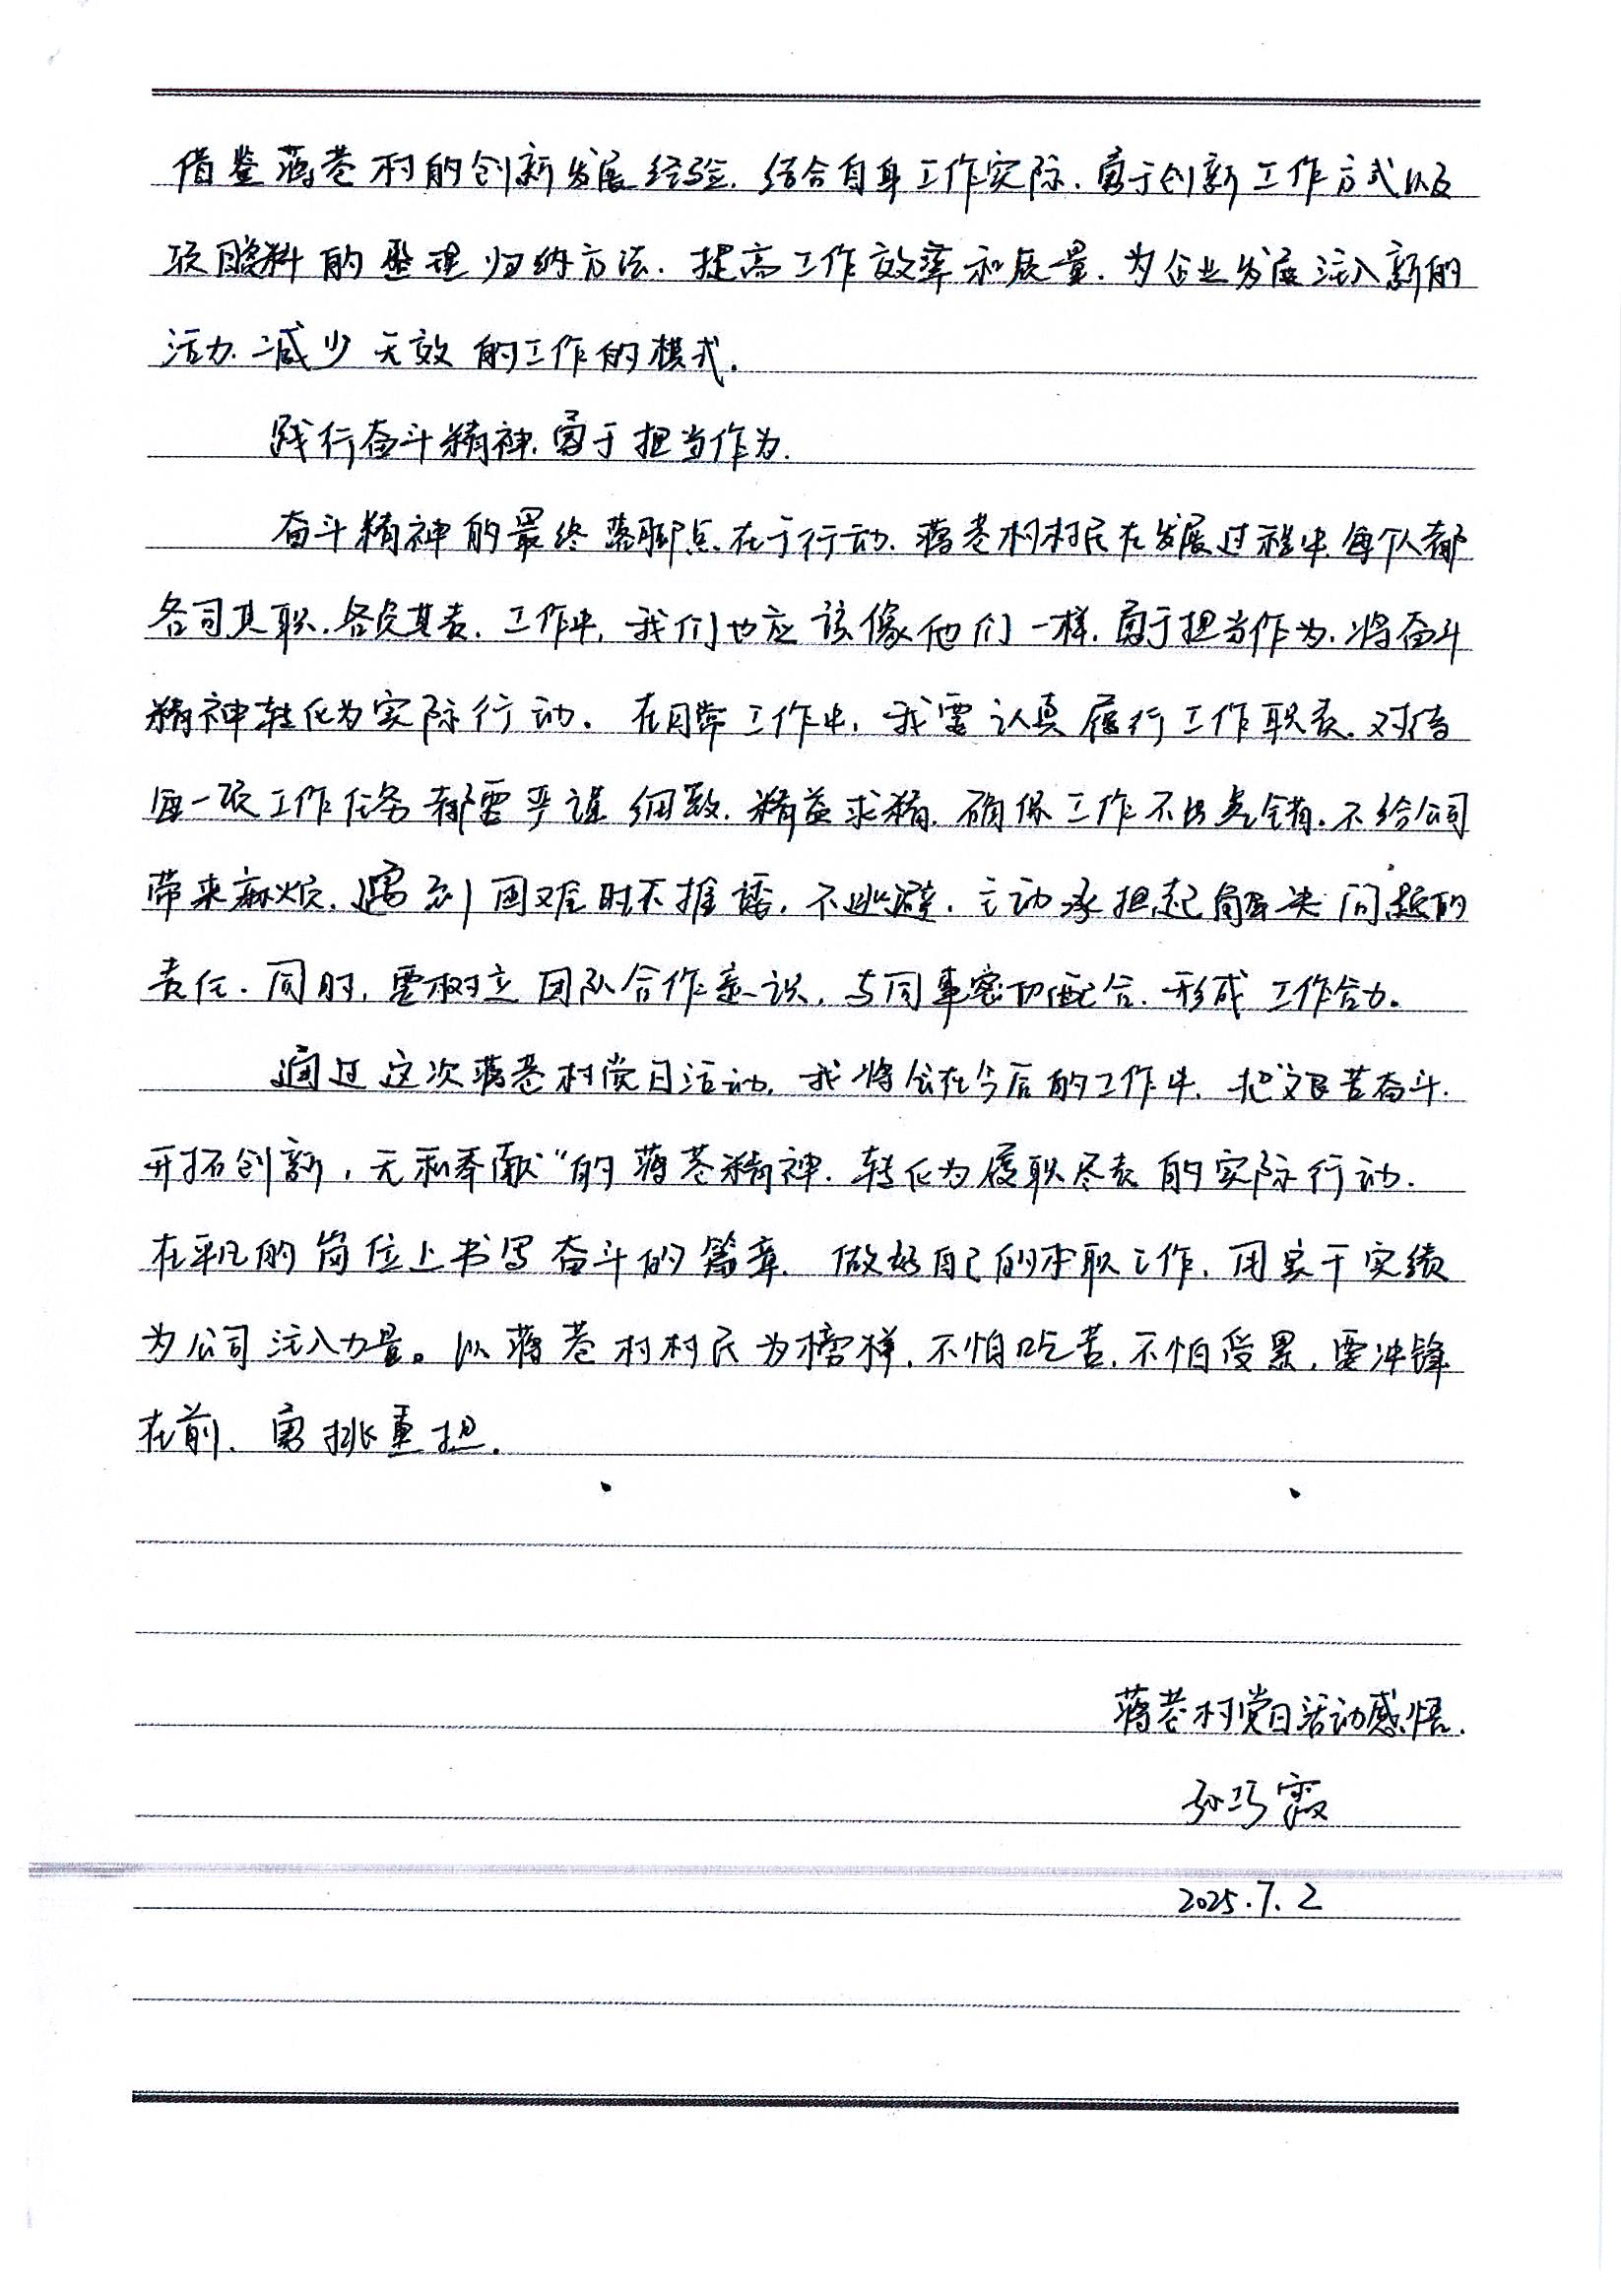 借鉴蒋巷村的创新发展经验，结合自身工作实际，勇于创新工作方式以及
项目资料的整理归纳方法，提高工作效率和质量，为企业发展注入新的
活力，减少无效的工作的模式。
践行奋斗精神，勇于担当作为.
奋斗精神的最终落脚点，在于行动，蒋巷村村民在发展过程中，每个人都
各司其职，各负其责，工作中，我们也应该像他们一样，勇于担当作为，将奋斗
精神转化为实际行动。在日常工作中，我要认真履行工作职责，对待
每一项工作任务都要严谨细致，精益求精，确保工作不出差错，不给公司
带来麻烦，遇到困难时不推诿，不逃避，主动承担起解决问题的
责任.同时，要树立团队合作意识，与同事密切配合，形成工作合力。
通过这次蒋巷村党日活动，我将会在今后的工作中，把“艰苦奋斗，
开拓创新，无私奉献”的蒋巷精神，转化为履职尽责的实际行动.
在平凡的岗位上书写奋斗的篇章，做好自己的本职工作，用实干实绩
为公司注入力量。以蒋巷村村民为榜样，不怕吃苦，不怕受累，要冲锋
在前，勇挑重担.
蒋巷村党日活动感悟.
孙巧霞
2025.7.2